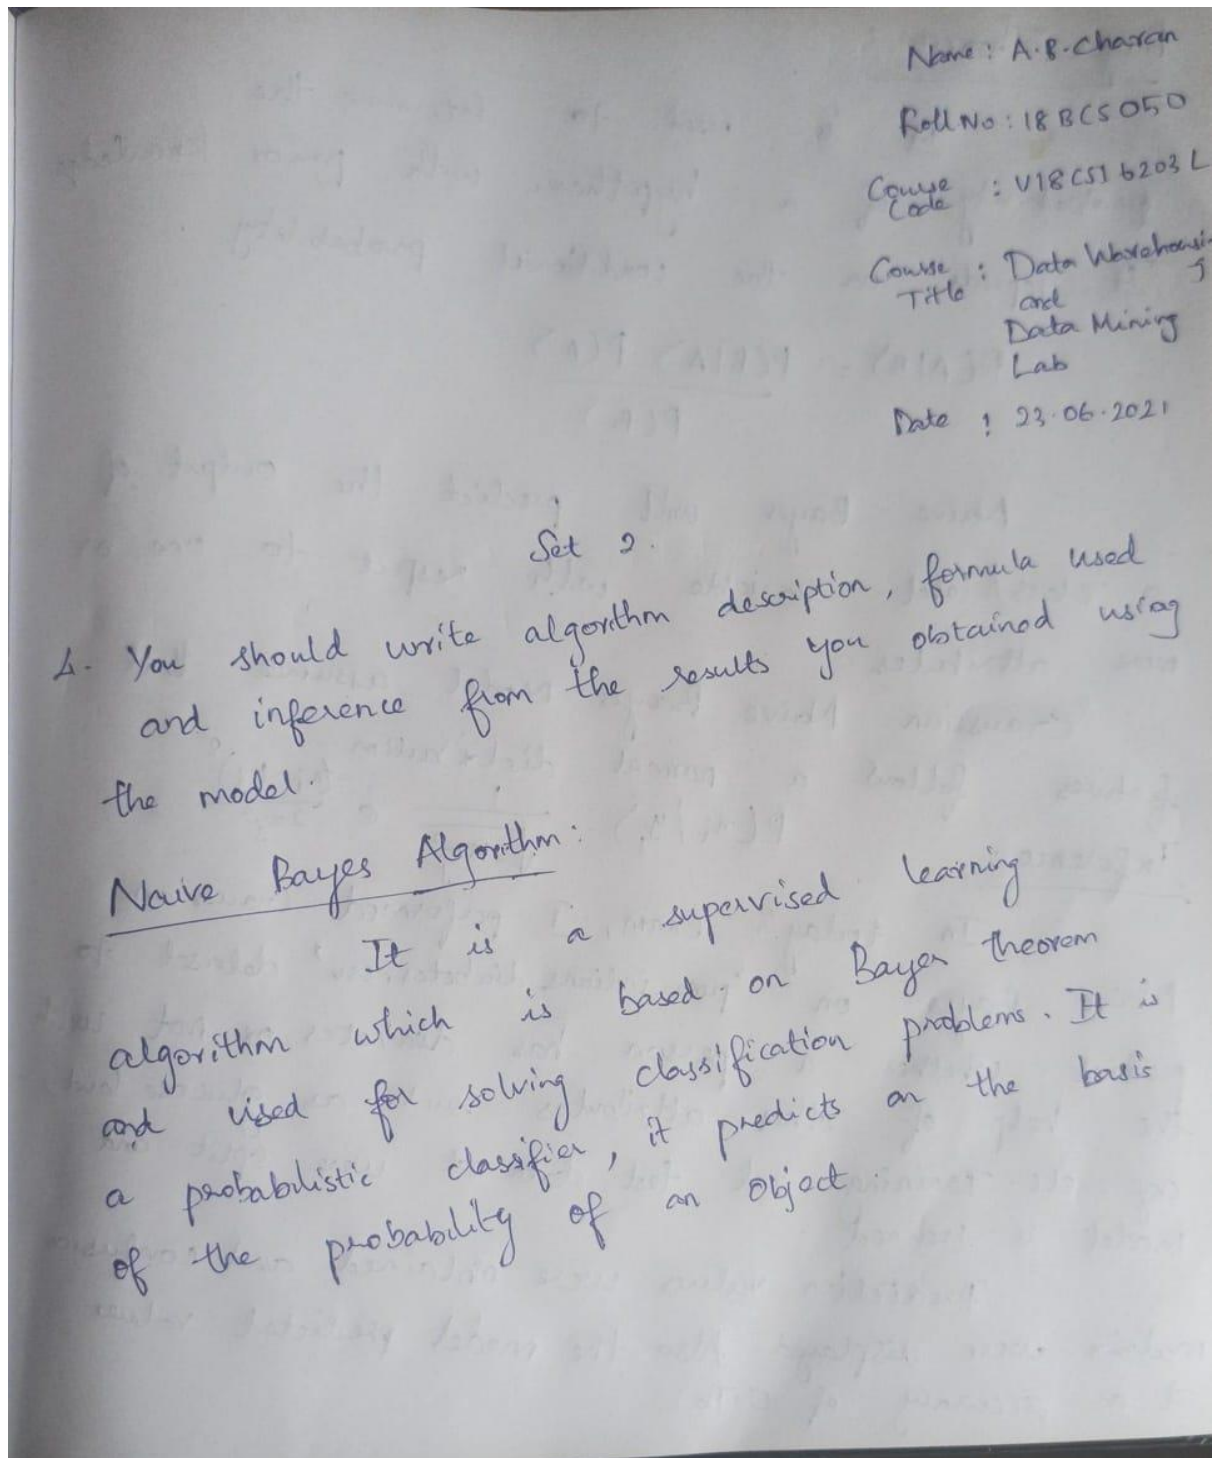 Name : A.B.Charan
Roll No : 18BCS050
Course Code : V18CSI6203L
Course Title : Data Warehousing
and
Data Mining
Lab
Date : 23.06.2021
Set 2.
1. You should write algorithm description, formula used
and inference from the results you obtained using
the model.
Naive Bayes Algorithm:
It is a supervised learning
algorithm which is based on Bayes theorem
and used for solving classification problems. It is
a probabilistic classifier, it predicts on the basis
of the probability of an object.